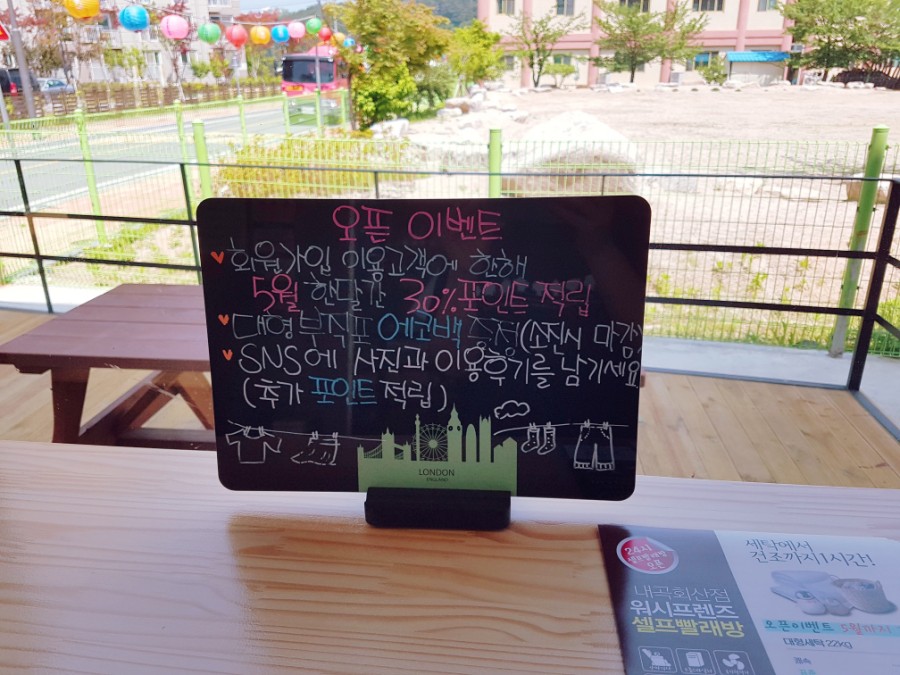 오픈 이벤트
회원가입 이용고객에 한해
5월 한달간 30% 포인트 적립
대형 부직포 에코백 증정(소진시 마감)
SNS에 사진과 이용후기를 남기세요
(추가 포인트 적립)
LONDON
ENGLAND
24시
오픈
세탁에서
건조까지 1시간!
내곡회산점
워시프렌즈
셀프빨래방
오픈이벤트 5월까지
대형세탁 22KG